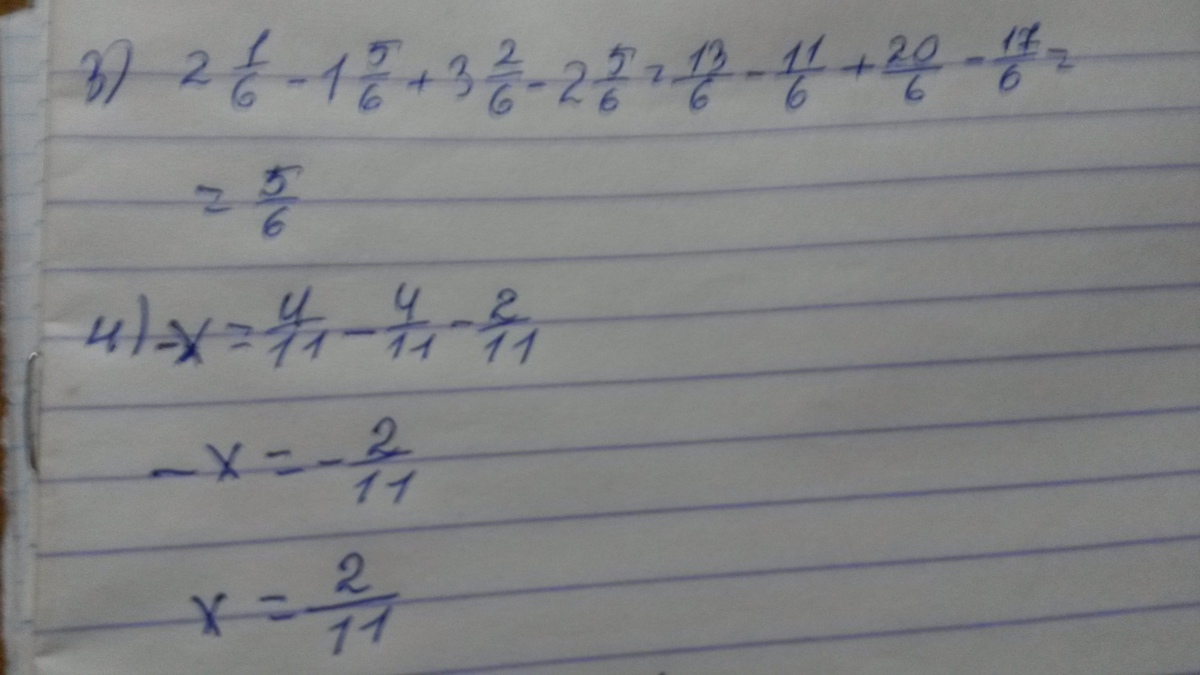 3) 2 1/6 - 1 5/6 + 3 2/6 - 2 5/6 = 13/6 - 11/6 + 20/6 - 17/6 =
= 5/6
4) -x = 4/11 - 4/11 - 2/11
-x = - 2/11
x = 2/11